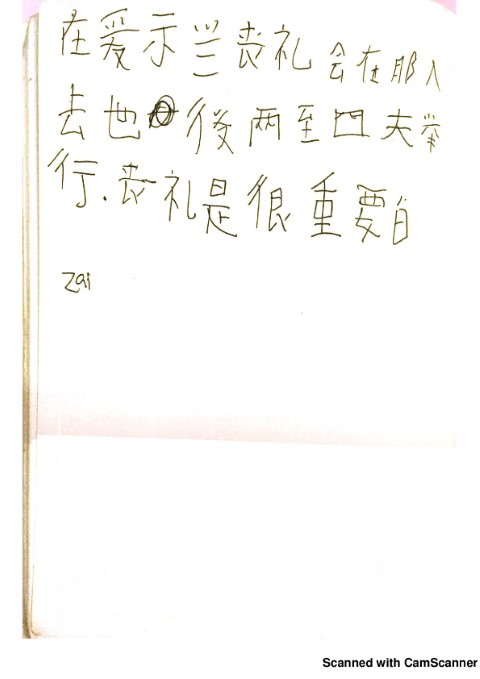 在爱示兰丧礼会在那人
去也後两至四夫举
行.丧礼是很重要白
zai
Scanned with CamScanner